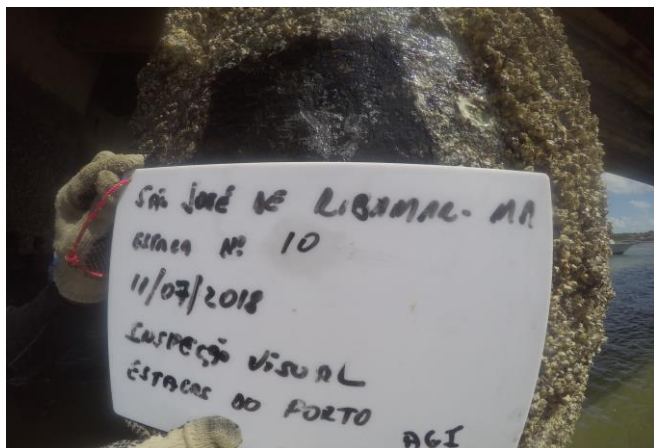 SÃO JOSÉ DE RIBAMAR - MA
ESTACA Nº 10
11/07/2018
INSPEÇÃO VISUAL
ESTACAS DO PORTO
AGI